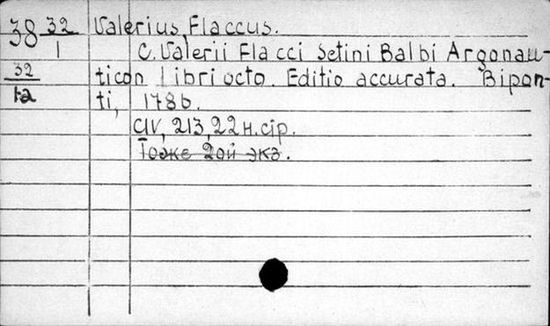 38 32 Valerius, Flaccus.
1 C. Valerii Flacci Setini Balbi Argonau-
32 ticon libri octo. Editio accurata. Bipon-
1a ti, 1786.
CIV, 213, 22 н.стр.
Тоже 2ой экз.